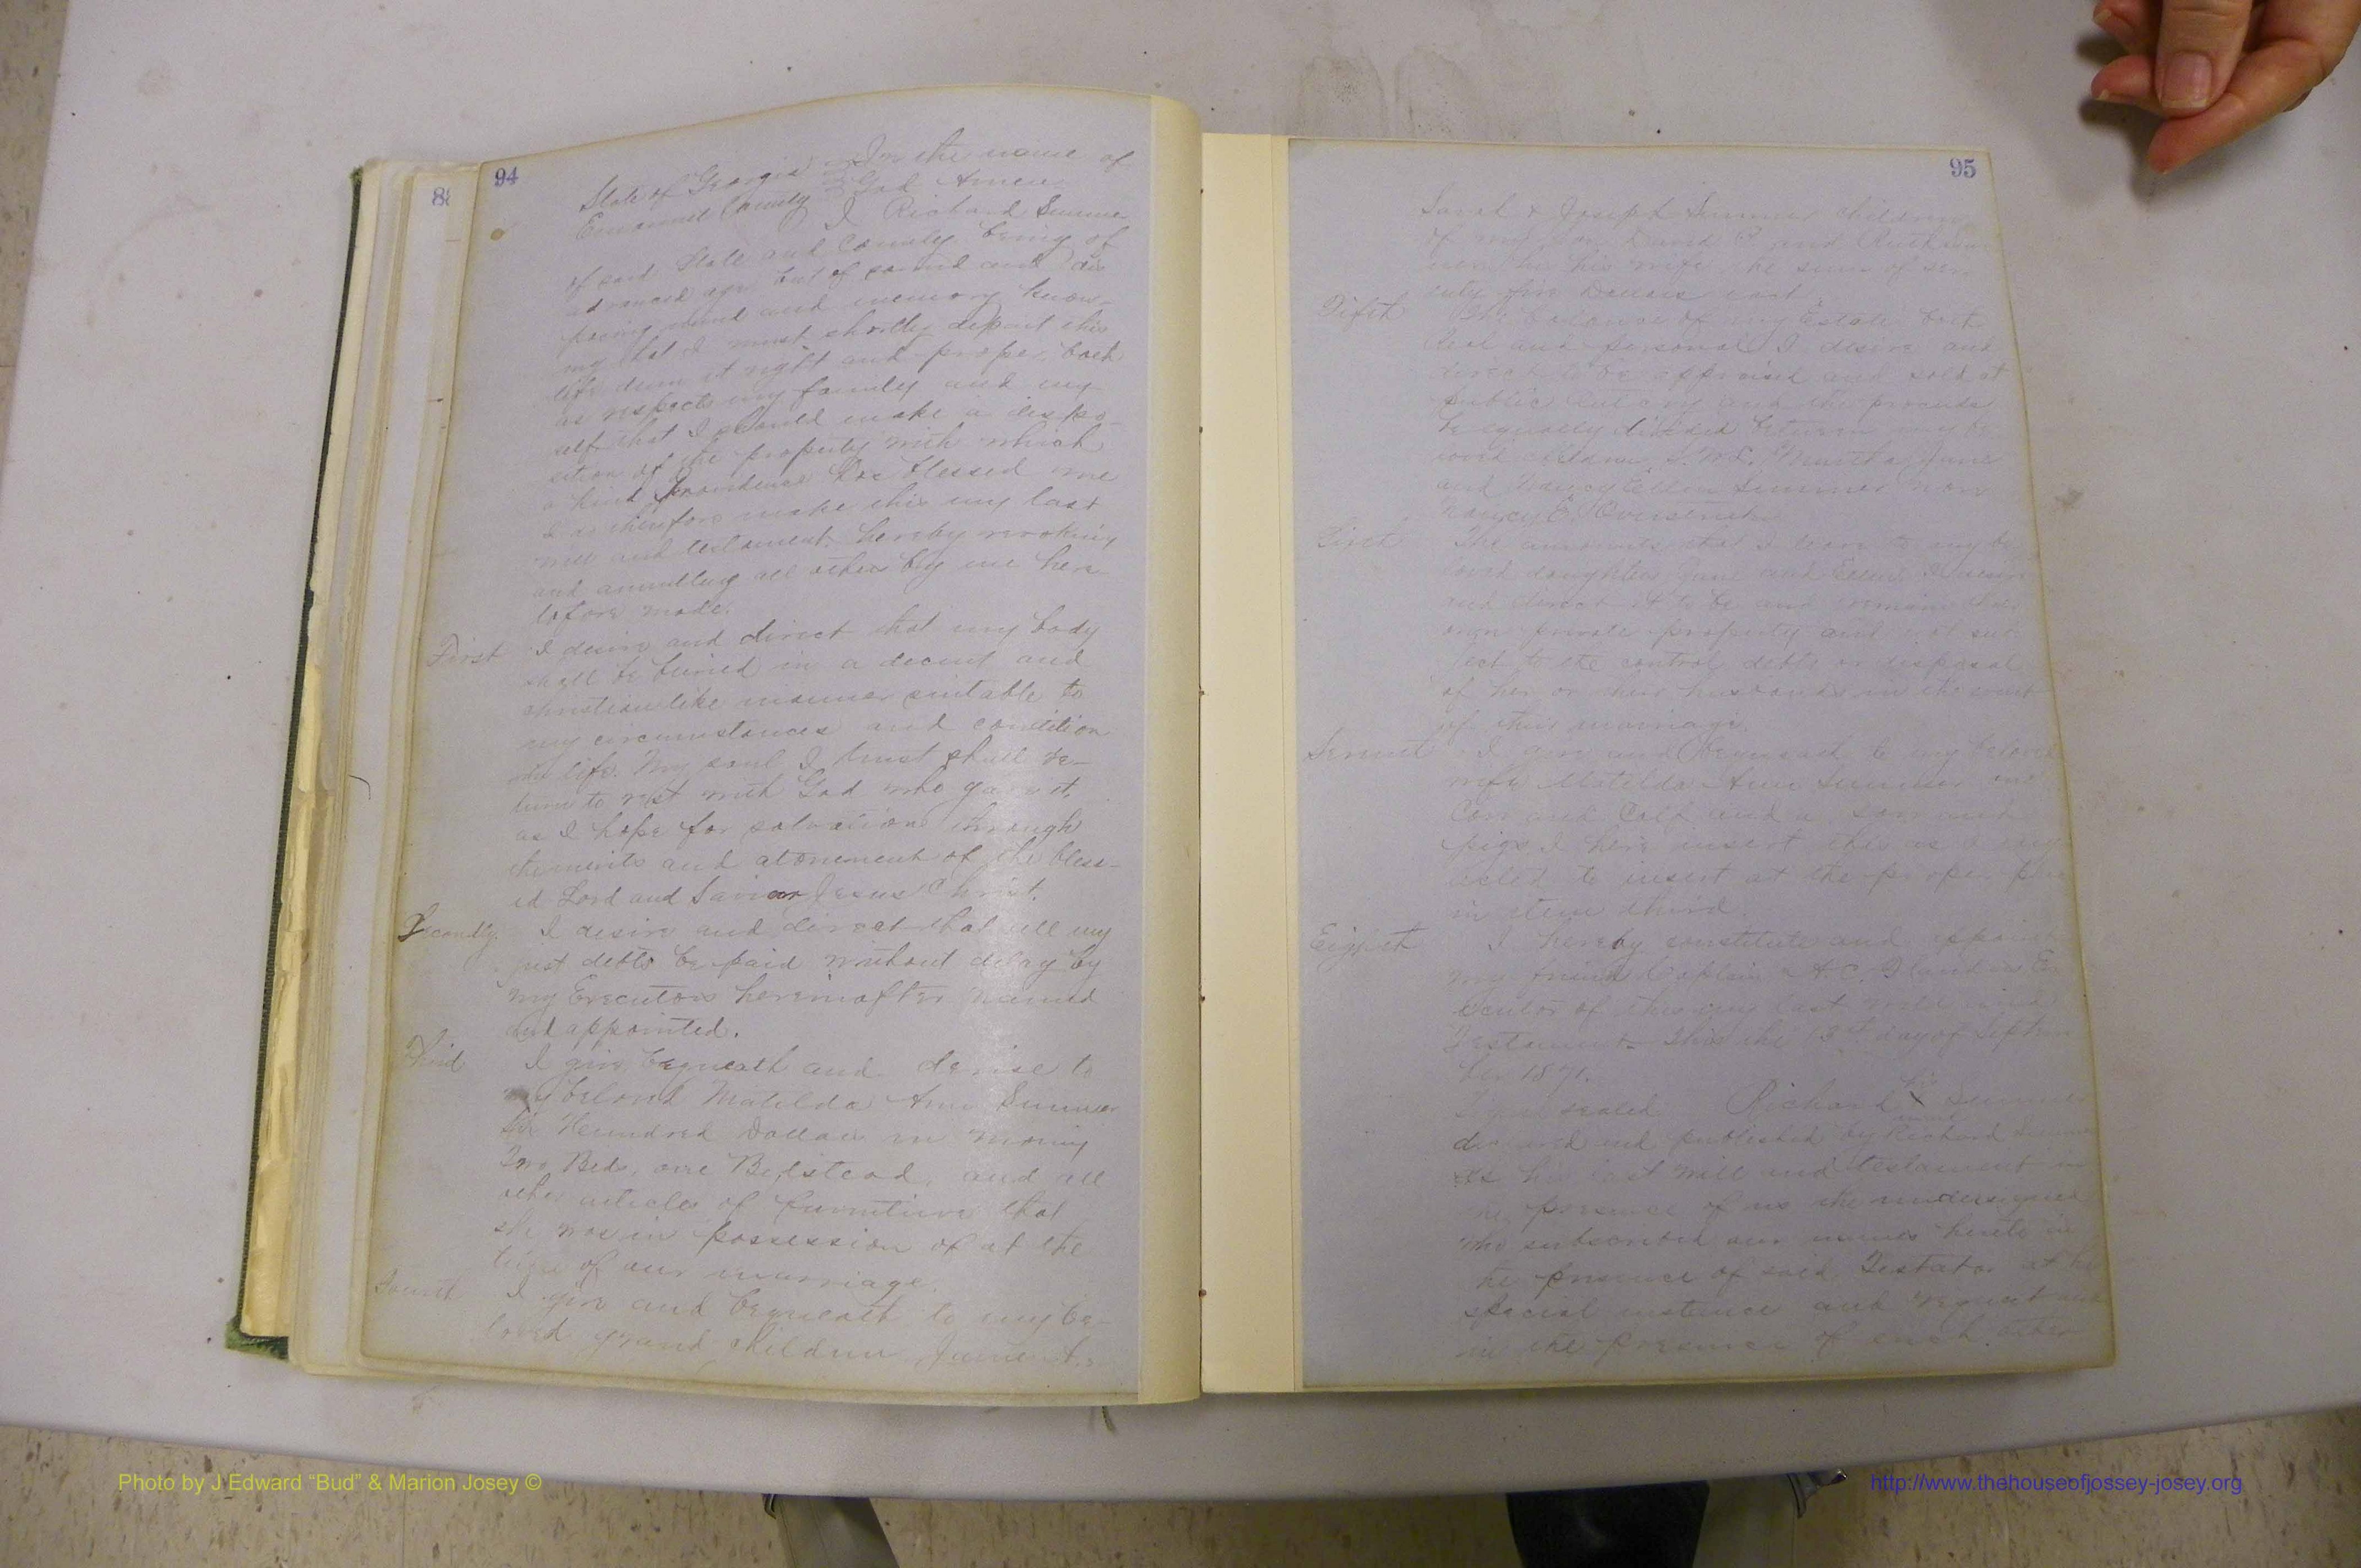 94
State of Georgia In the name of
Emanuel County God Amen
I Richard Sumner
of said State and County being of
advanced age but of sound and dis
posing mind and memory know-
ing that I must shortly depart this
life deem it right and proper both
as respects my family and my-
self that I should make a dispo-
sition of the property with which
a kind providence has blessed me
I do therefore make this my last
will and testament. hereby revoking
and annulling all others by me here
tofore made.
First I desire and direct that my body
shall be buried in a decent and
christianlike manner suitable to
my circumstances and condition
in life. My soul I trust shall re-
turn to rest with God who gave it.
as I hope for salvation through
the merits and atonement of the bless-
ed Lord and Savior Jesus Christ.
Secondly. I desire and direct that all my
just debts be paid without delay by
my Executors hereinafter named
and appointed.
Third I give, bequeath and devise to
my beloved Matilda Ann Sumner
Hundred Dollars in money
Two Beds, one Bedstead, and all
other articles of furniture that
she was in possession of at the
time of our marriage.
Fourth I give and bequeath to my be-
loved grand children
88
95
Sarah & Joseph Sumner children
of my son David and
his wife the sum of sev
enty five Dollars each
Fifth The balance of my Estate both
Real and personal I desire and
direct to be appraised and sold at
public out cry and the proceeds
be equally divided between my be
loved children, Martha Jane
and Nancy Ellen Sumner now
Nancy E.
The amounts that I leave to my be
loved daughters Jane and Ellen I desire
and direct it to be and remain their
own private property and not sub
ject to the control debts or disposal
of her or their husbands in the event
of their marriage.
I give and bequeath to my beloved
wife Matilda Ann Sumner one
Cow and Calf and a sow and
pigs I here insert this as I neg
lected to insert at the proper place
in item third.
Eight I hereby constitute and appoint
my friend Captain as Ex
ecutor of this my last will and
Testament. This the day of Septem
ber 1871.
his
sealed Richard X Sumner
mark
declared and published by Richard Sumner
as his last will and testament in
the presence of us the undersigned
who subscribed our names hereto in
the presence of said Testator at his
special instance and request and
in the presence of each other
Photo by J Edward “Bud” & Marion Josey ©
http://www.thehouseofjossey-josey.org